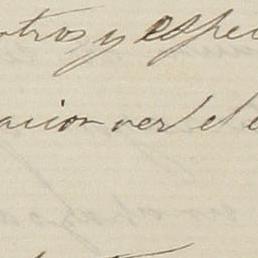 otros y espec
acion ver el e